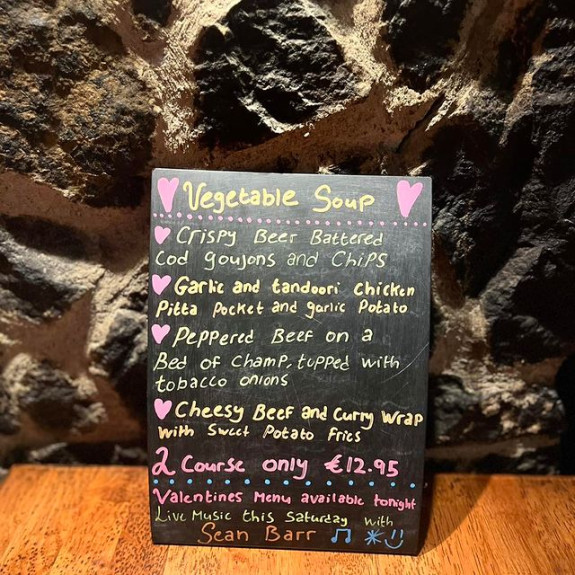 Vegetable Soup
Crispy Beer Battered
Cod goujons and Chips
Garlic and tandoori Chicken
Pitta Pocket and garlic Potato
Peppered Beef on a
Bed of Champ, topped with
tobacco onions
Cheesy Beef and Curry Wrap
With Sweet Potato Fries
2 Course only €12.95
Valentines Menu available tonight
Live Music this Saturday with
Sean Barr